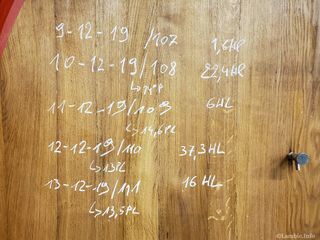 9-12-19 /107 1,6HL
10-12-19/108 22,4HL
11-12-19/109 6HL
↳14,6PL
12-12-19/110 37,3HL
↳13PL
13-12-19/111 16HL
↳13,5PL
©Lambic.Info